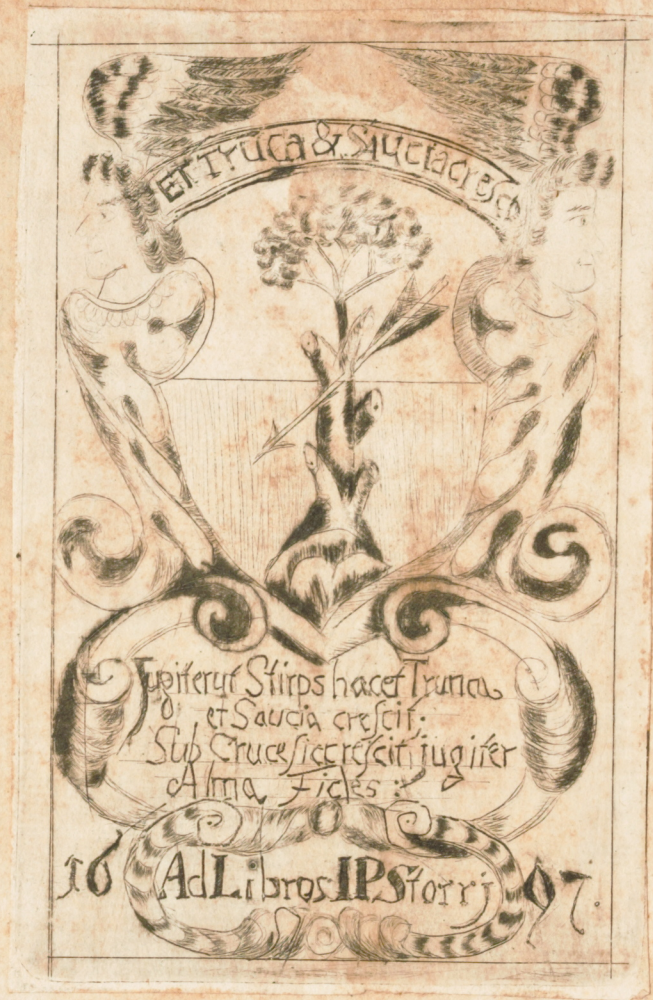 ET Truca & Siuciacresco
Jugiterut Stirps hacet Trunca
et Saucia crescit.
Sub Cruce siccrescit jugiter
Alma Fides :
16 Ad Libros IP Storrj 97.